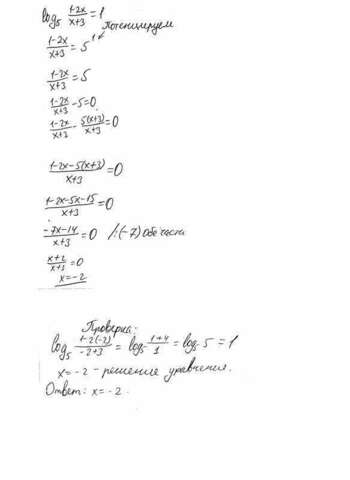 log₅ (1-2x)/(x+3) = 1
Потенцируем
(1-2x)/(x+3) = 5¹
(1-2x)/(x+3) = 5
(1-2x)/(x+3) - 5 = 0
(1-2x)/(x+3) - 5(x+3)/(x+3) = 0
(1-2x-5(x+3))/(x+3) = 0
(1-2x-5x-15)/(x+3) = 0
(-7x-14)/(x+3) = 0 /:(-7) Обе части
(x+2)/(x+3) = 0
x = -2
Проверка:
log₅ (1-2(-2))/(-2+3) = log₅ (1+4)/1 = log₅ 5 = 1
x = -2 - решение уравнения.
Ответ: x = -2.